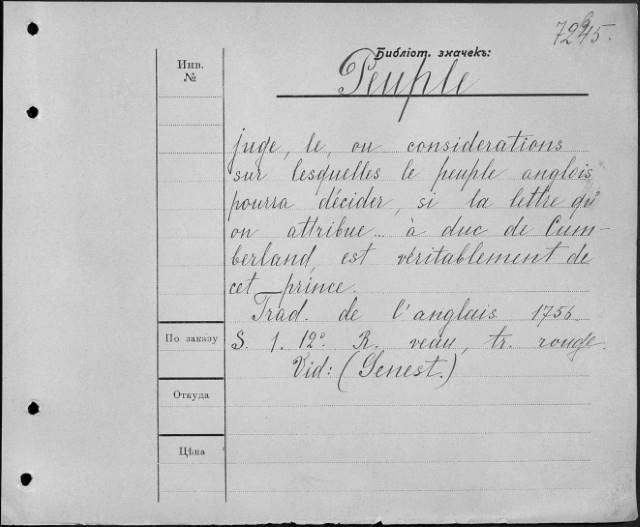 7265.
Инв.
№
Библіот. значекъ:
Peuple
juge, le, ou considerations
sur lesquelles le peuple anglois
pourra décider, si la lettre qu'
on attribue... à duc de Cum-
berland, est véritablement de
cet prince.
Trad. de l'anglais 1756
S. l. 12º. R. veau, tr. rouge.
Vid: (Genest.)
По заказу
Откуда
Цѣна